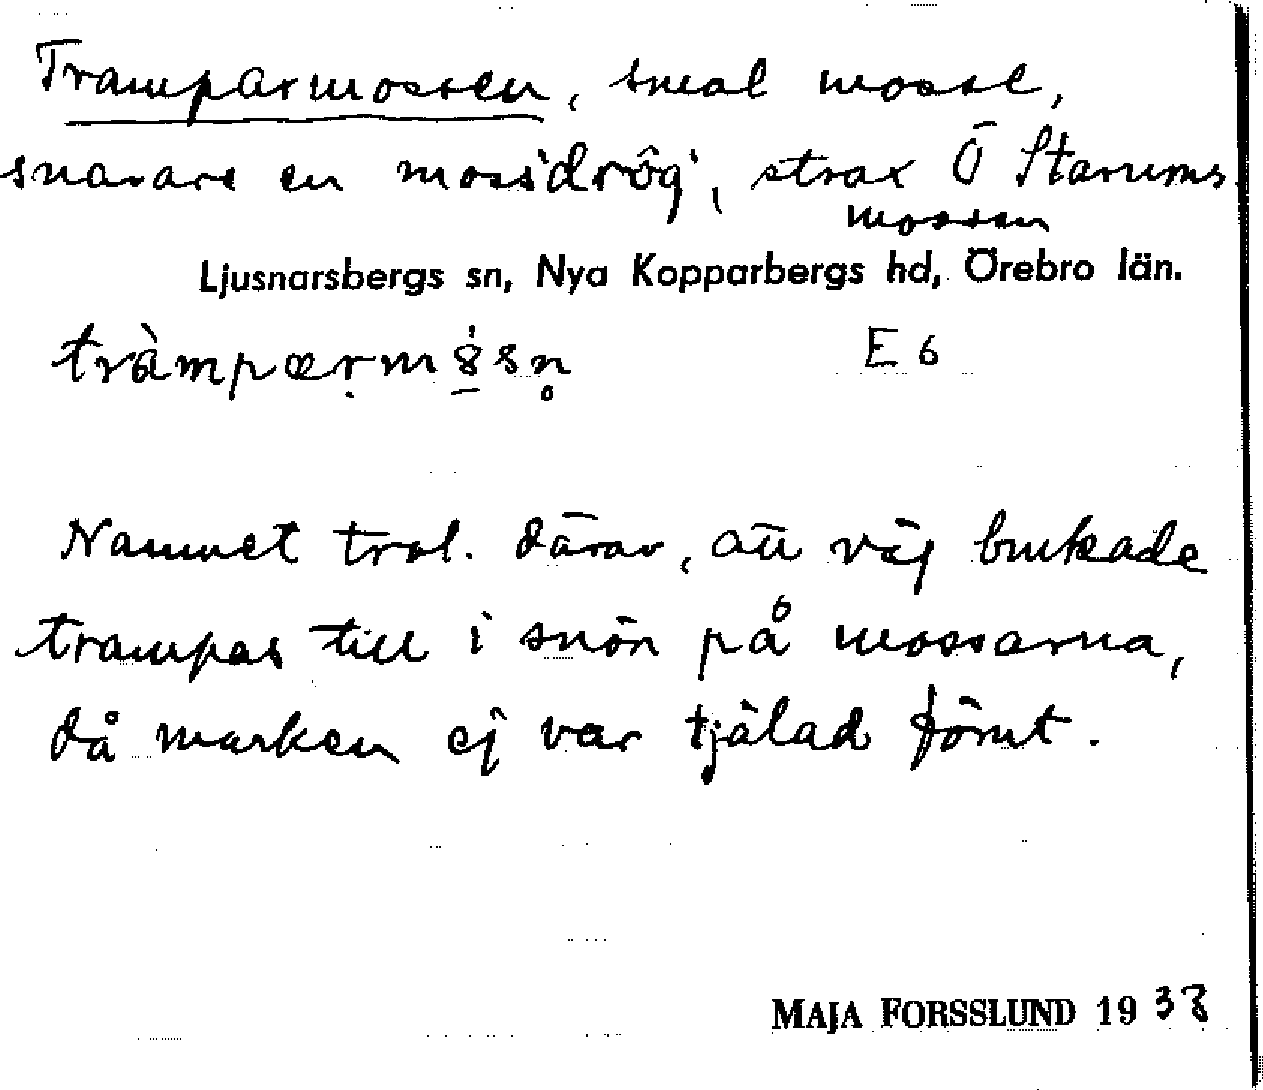 Tramparmossen, smal mosse,
snarare en moss'drôg', strax Ö Starrums
mossen
Ljusnarsbergs sn, Nya Kopparbergs hd, Örebro län.
E 6
Namnet trol. därav, att väg brukade
trampas till i snön på mossarna,
då marken ej var tjälad jämt.
MAJA FORSSLUND 1938